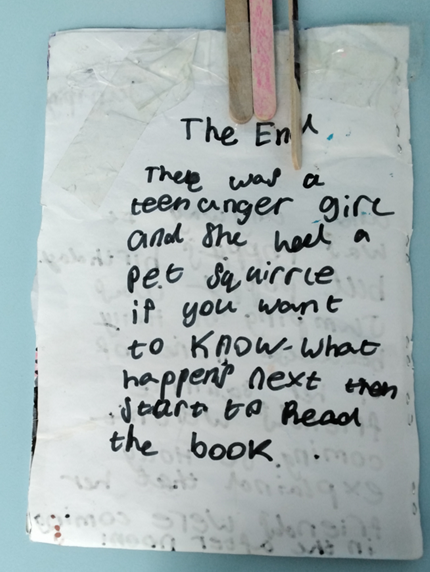 The End.
There was a
teenanger girl
and She had a
pet Squirrle
if you want
to KNOW what
happens next then
start to Read
the book.